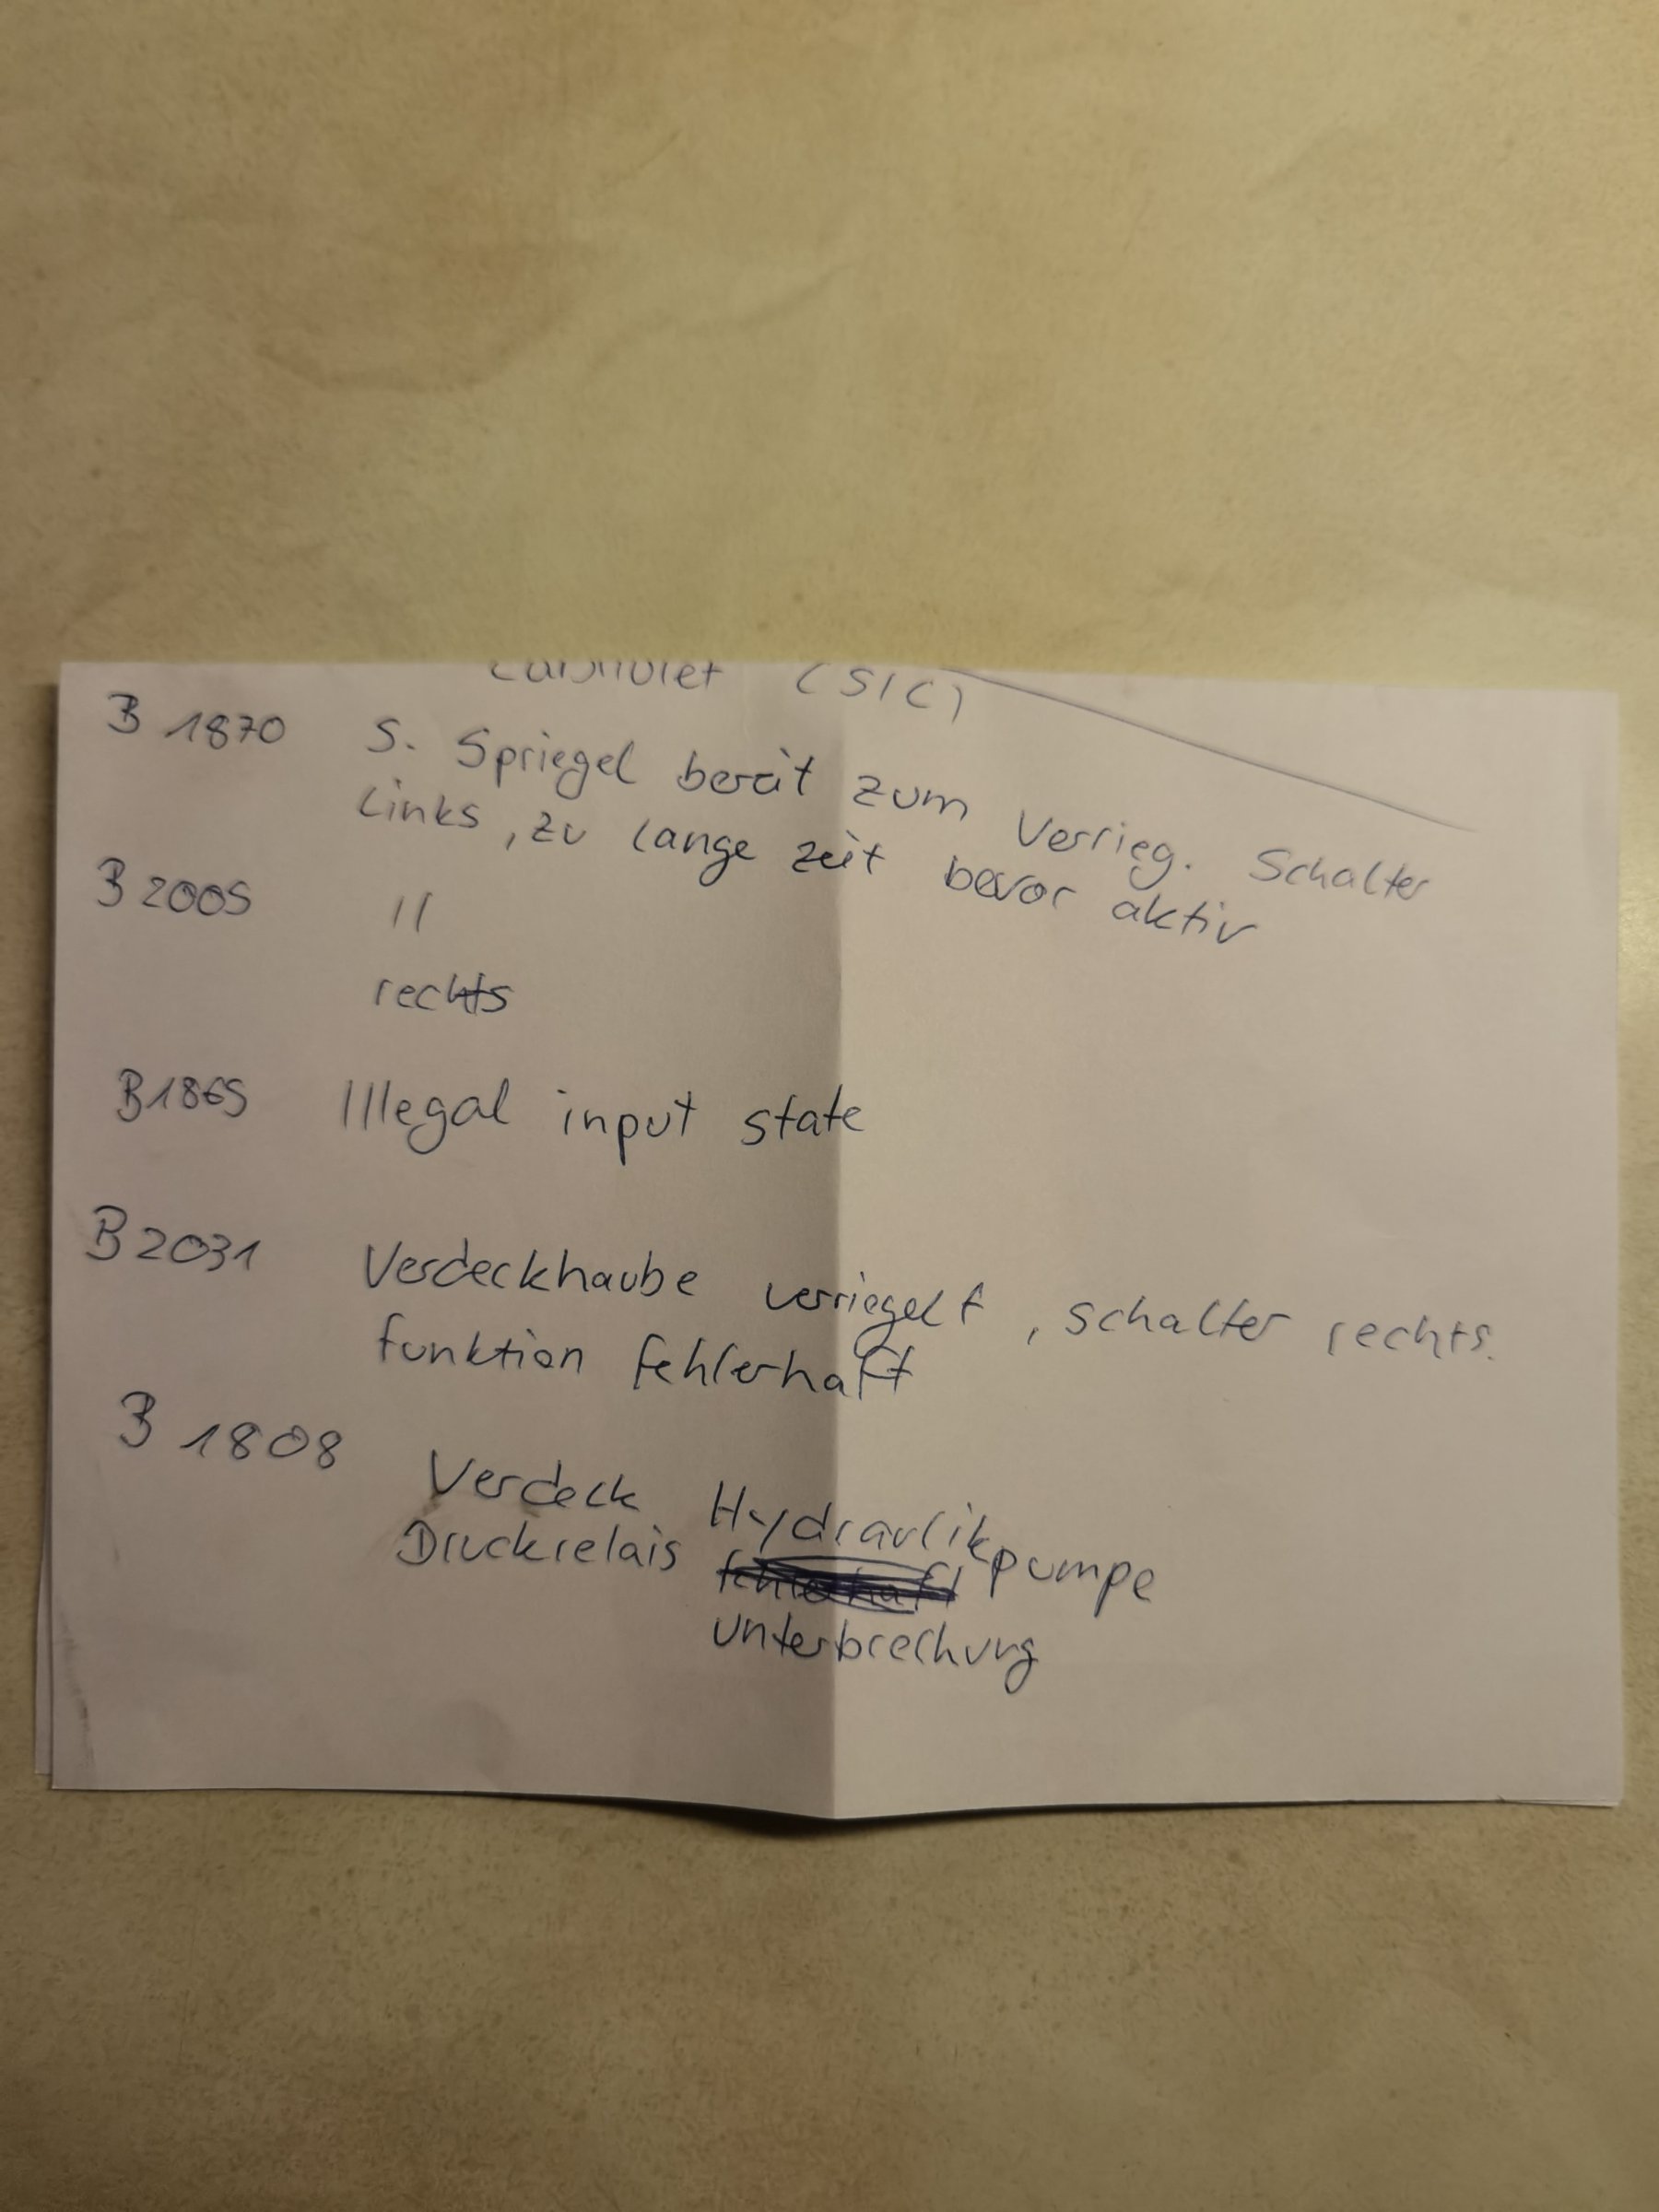 Cabriolet (SIC)
B 1870 5. Spriegel bereit zum Verrieg. Schalter
Links, zu lange zeit bevor aktiv
B 2005 "
rechts
B1865 Illegal input state
B2031 Verdeckhaube verriegelt, schalter rechts.
funktion fehlerhaft
B 1808 Verdeck Hydraulikpumpe
Druckrelais fehlerhaft
Unterbrechung